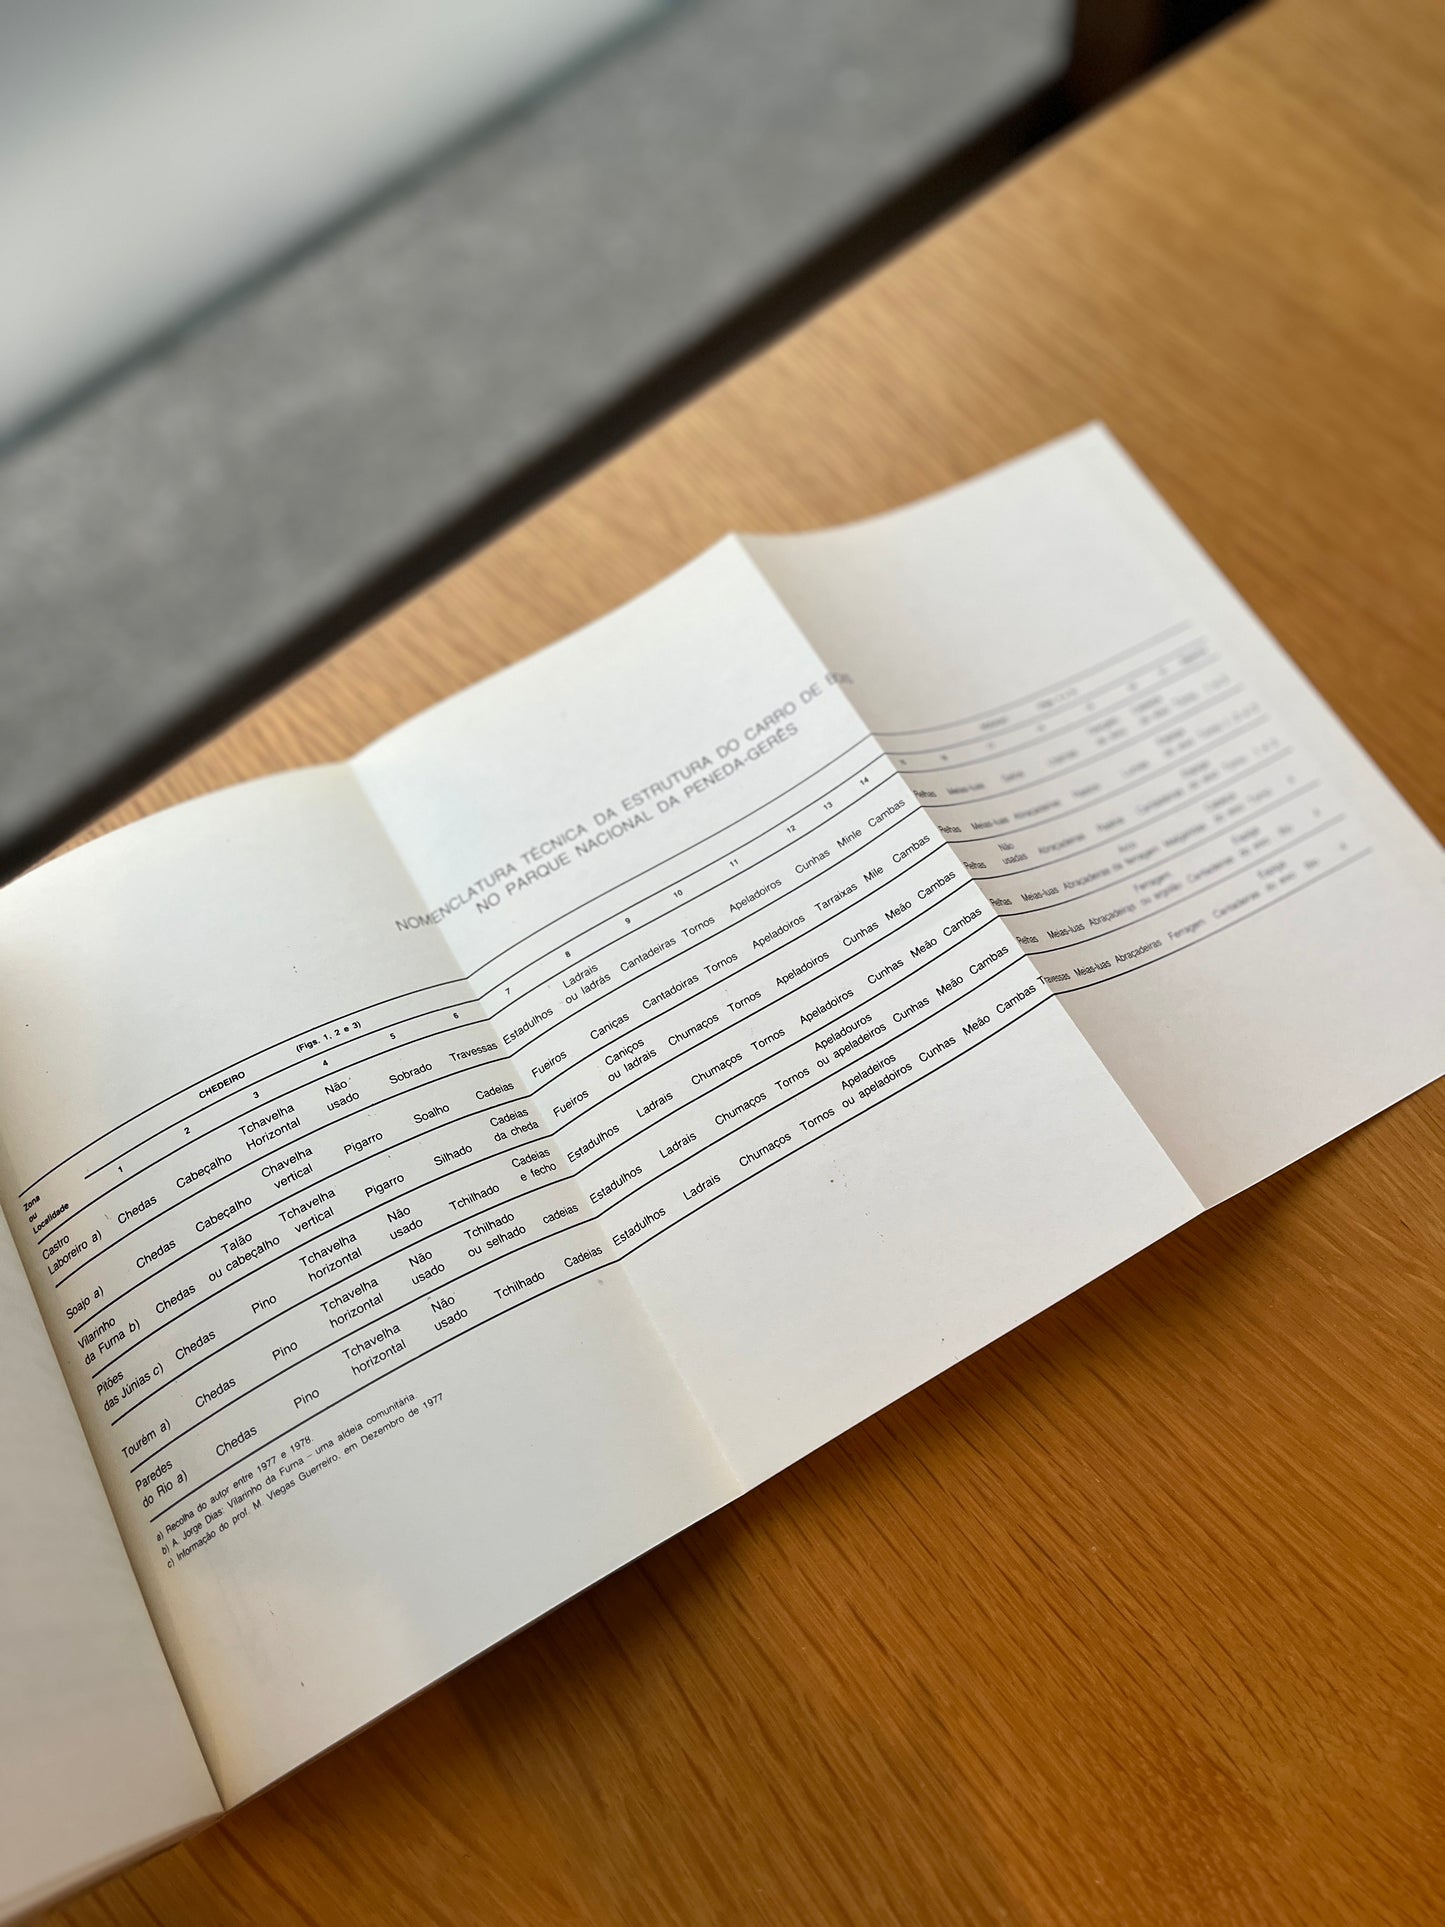 NOMENCLATURA TÉCNICA DA ESTRUTURA DO CARRO DE
NO PARQUE NACIONAL DA PENEDA-GERÊS
CHEDEIRO (Figs. 1, 2 e 3)
Zona
ou
Localidade
1 2 3 4 5 6 7 8 9 10 11 12 13 14
Tchavelha Não Ladrais
Castro
Laboreiro a) Chedas Cabeçalho Horizontal usado Sobrado Travessas Estadulhos ou ladrás Cantadeiras Tornos Apeladoiros Cunhas Minle Cambas Relhas Meias-luas
Chavelha
Soajo a) Chedas Cabeçalho vertical Pigarro Soalho Cadeias Fueiros Caniças Cantadoiras Tornos Apeladoiros Tarraixas Mile Cambas Relhas Meias-luas Abraçadeiras
Vilarinho Talão Tchavelha Cadeias Caniços Não
da Furna b) Chedas ou cabeçalho vertical Pigarro Silhado da cheda Fueiros ou ladrais Chumaços Tornos Apeladoiros Cunhas Meão Cambas Relhas usadas Abraçadeiras
Pitões Tchavelha Não Cadeias
das Júnias c) Chedas Pino horizontal usado Tchilhado e fecho Estadulhos Ladrais Chumaços Tornos Apeladoiros Cunhas Meão Cambas Relhas Meias-luas Abraçadeiras
Tchavelha Não Tchilhado Apeladouros
Tourém a) Chedas Pino horizontal usado ou selhado cadeias Estadulhos Ladrais Chumaços Tornos ou apeladeiros Cunhas Meão Cambas Relhas Meias-luas Abraçadeiras
Paredes Tchavelha Não Apeladeiros
do Rio a) Chedas Pino horizontal usado Tchilhado Cadeias Estadulhos Ladrais Chumaços Tornos ou apeladoiros Cunhas Meão Cambas Travessas Meias-luas Abraçadeiras Ferragem
a) Recolha do autor entre 1977 e 1978.
b) A. Jorge Dias: Vilarinho da Furna – uma aldeia comunitária.
c) Informação do prof. M. Viegas Guerreiro, em Dezembro de 1977